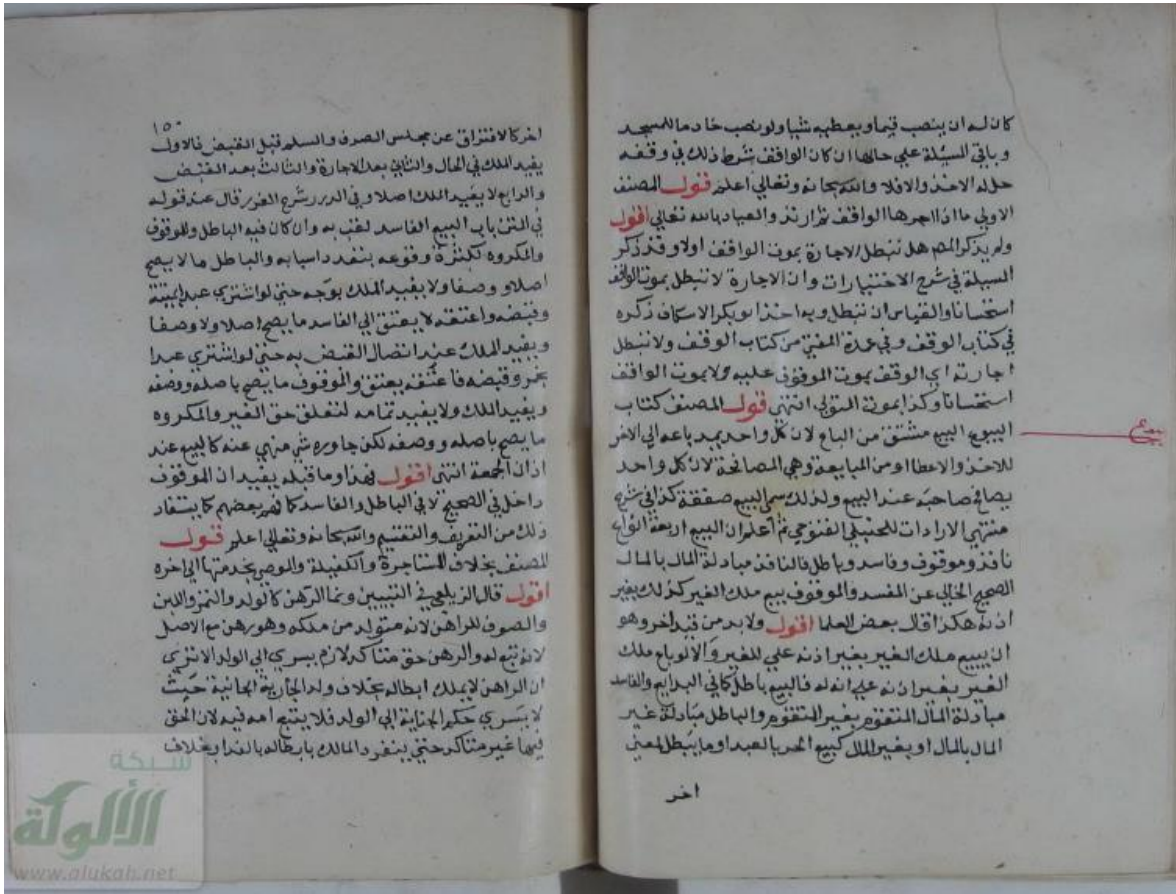 كان له ان ينصب قيما ويعطيه شيا ولو نصب خادما للمسجد
وباقي المسئلة علي حالها ان كان الواقف شرط ذلك في وقفه
حل له الاخذ والا فلا والله سبحانه وتعالي اعلم قول المصنف
الاولي ما اذا اجرها الواقف ثم ارتد والعياذ بالله تعالي اقول
ولم يذكر المصـ هل تبطل الاجارة بموت الواقف اولا وقد ذكر
المسيلة في شرح الاختيارات وان الاجارة لا تبطل بموت الواقف
استحسانا والقياس ان تبطل وبه اخذ ابو بكر الاسكاف ذكره
في كتاب الوقف وفي عمدة المفتي من كتاب الوقف ولا تبطل
اجارته اي الوقف بموت الموقوف عليه ولا بموت الواقف
استحسانا وكذا بموت المتولي انتهي قول المصنف كتاب
البيوع البيع مشتق من الباع لان كل واحد يمد باعه الي الاخر
للاخذ والاعطا او من المبايعة وهي المصافحة لان كل واحد
يصافح صاحبه عند البيع ولذلك سمي البيع صفقة كذا في شرح
منتهي الارادات للحنبلي الفتوحي ثم اعلم ان البيع اربعة انواع
نافذ وموقوف وفاسد وباطل فالنافذ مبادلة المال بالمال
الصحيح الخالي عن المفسد والموقوف بيع ملك الغير كذلك بغير
اذنه هكذا قال بعض العلما اقول ولا بد من قيد اخر وهو
ان يبيع ملك الغير بغير اذنه علي للغير والا لو باع ملك
الغير بغير اذنه علي انه له فالبيع باطل كما في البدايع والفاسد
مبادلة المال المتقوم بغير المتقوم والباطل مبادلة غير
المال بالمال او بغير المال كبيع الحر بالعبد او ما يبطل لمعني
اخر
بيوع
١٥٠
اخر كالافتراق عن مجلس الصرف والسلم قبل القبض فالاول
يفيد الملك في الحال والثاني بعد الاجازة والثالث بعد القبض
والرابع لا يفيد الملك اصلا وفي الدرر شرح الغرر قال عند قوله
في المتن باب البيع الفاسد لقب به وان كان فيه الباطل والموقوف
والمكروه لكثرة وقوعه بتعدد اسبابه والباطل ما لا يصح
اصلا ووصفا ولا يفيد الملك بوجه حتي لو اشتري عبدا بميتة
وقبضه واعتقه لا يعتق الي الفاسد ما يصح اصلا ولا وصفا
ويفيد الملك عند اتصال القبض به حتي لو اشتري عبدا
بخمر وقبضه فاعتقه يعتق والموقوف ما يصح باصله ووصفه
ويفيد الملك ولا يفيد تمامه لتعلق حق الغير والمكروه
ما يصح باصله ووصفه لكن جاوره شي منهي عنه كالبيع عند
اذان الجمعة انتهي اقول فهذا وما قبله يفيد ان الموقوف
داخل في الصحيح لا في الباطل والفاسد كما فهم بعضهم كما يستفاد
ذلك من التعريف والتقسيم والله سبحانه وتعالي اعلم قول
المصنف بخلاف المستاجرة والكفيلة والموصي بخدمتها الي اخره
اقول قال الزيلعي في التبيين ونما الرهن كالولد والثمر واللبن
والصوف للراهن لانه متولد من ملكه وهو رهن مع الاصل
لانه تبع له والرهن حق متاكد لازم يسري الي الولد الا تري
ان الراهن لا يملك ابطاله بخلاف ولد الجارية الجانية حيث
لا يسري حكم الجناية الي الولد فلا يتبع امه فيه لان الحق
فيها غير متاكد حتي ينفرد المالك بابطاله بالفدا وبخلاف
شبكة
الألوكة
www.alukah.net